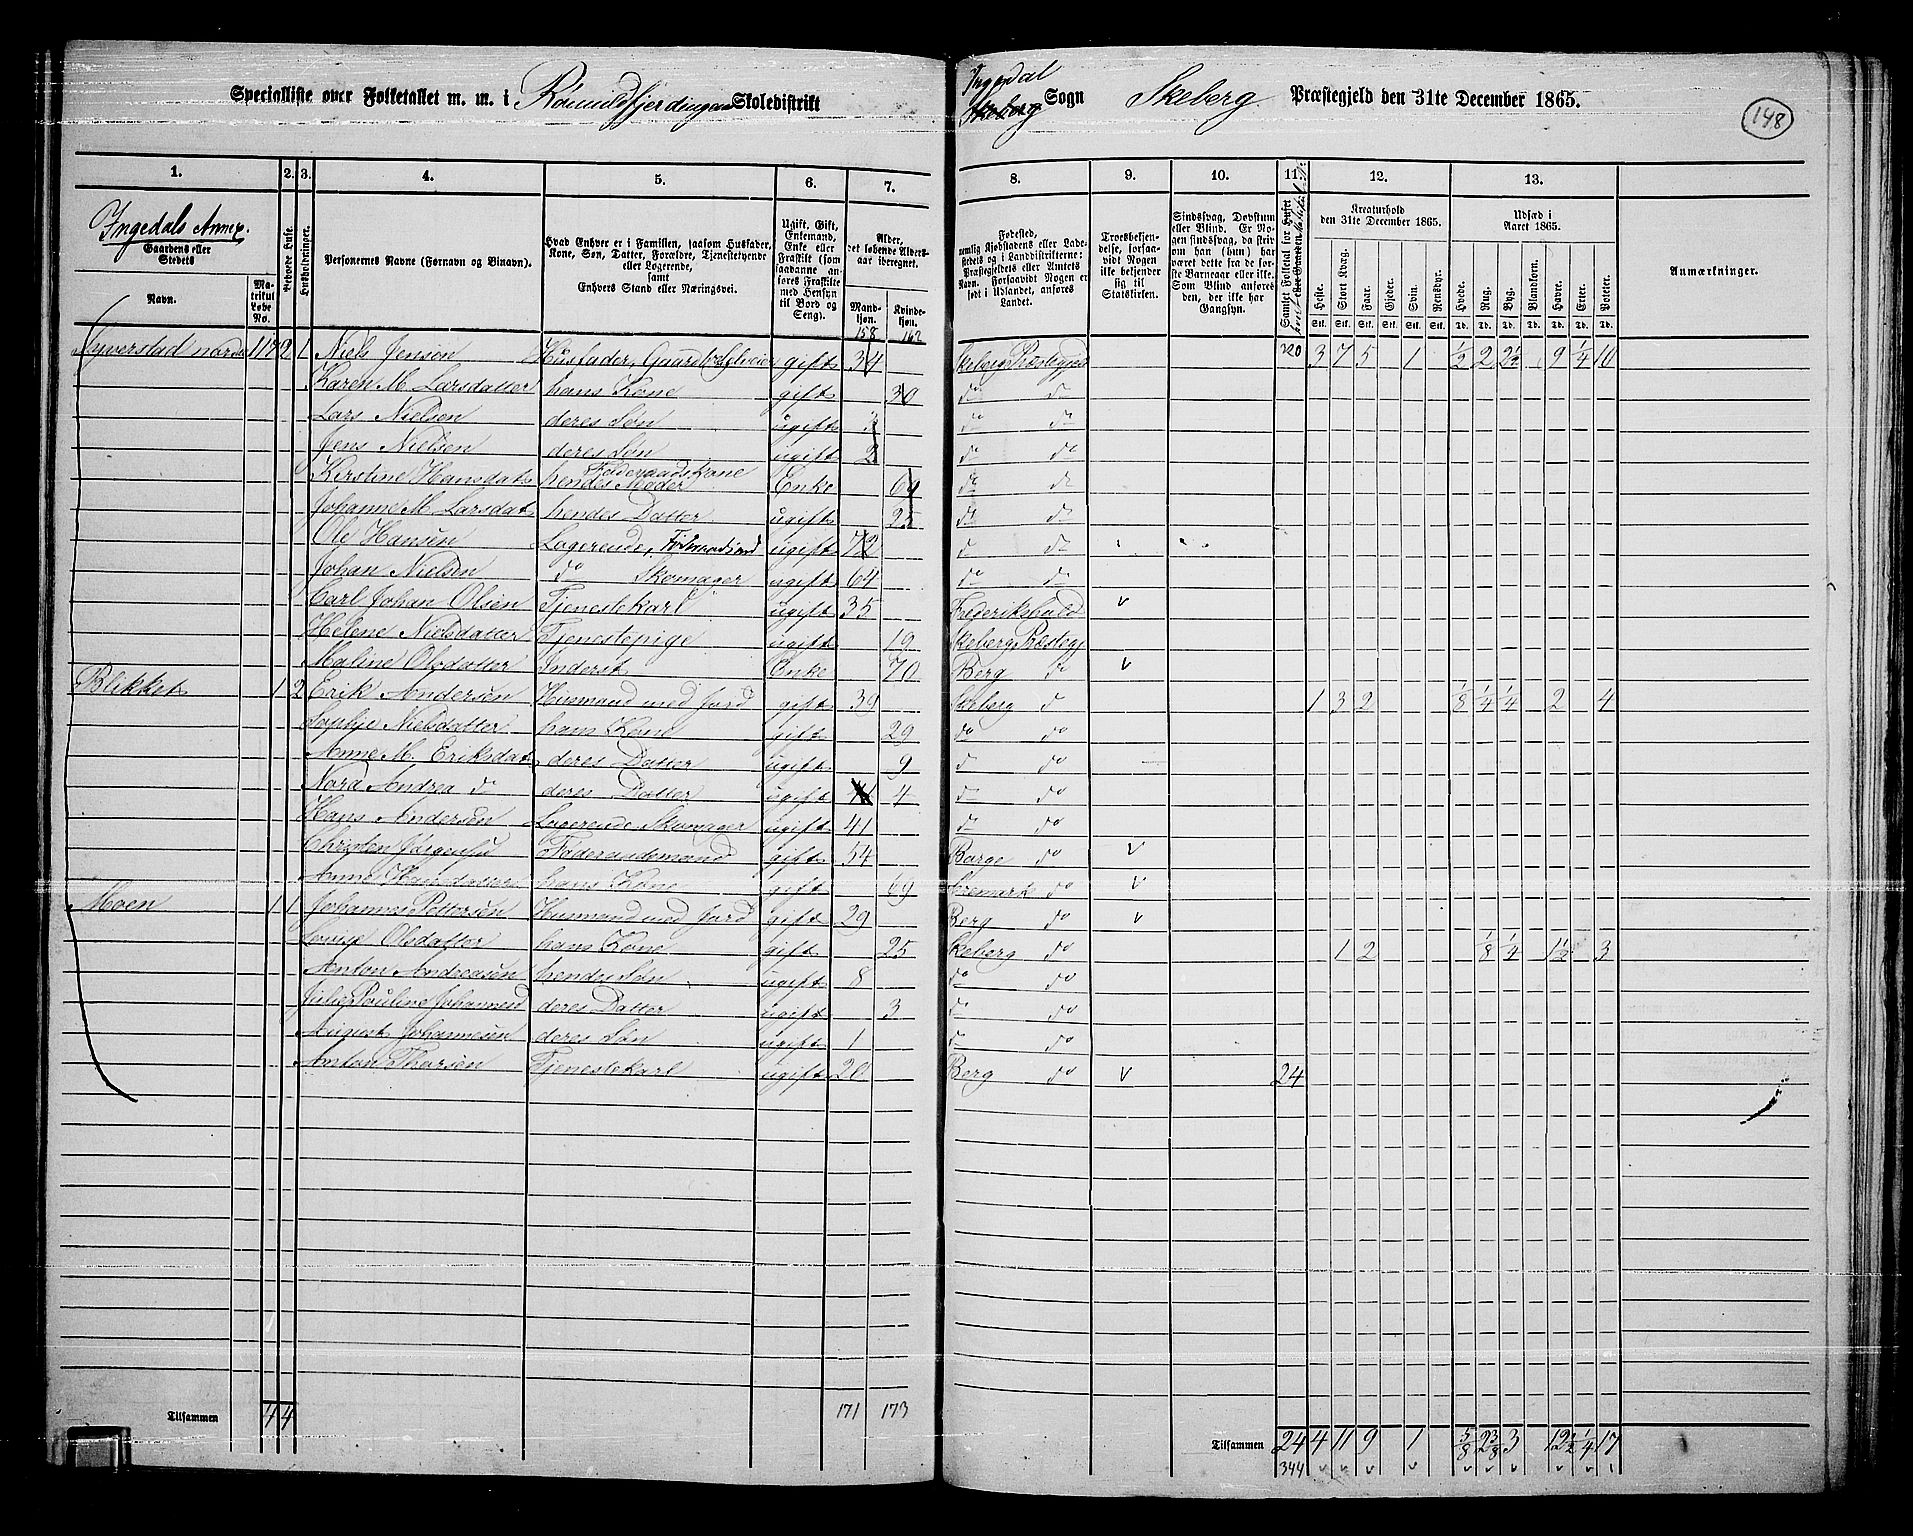 Specialliste over Folketallet m. m. i Skoledistrikt
Ingedal
Skeberg Sogn Skeberg Præstegjeld den 31te December 1865.
148
1. 2. 3. 4. 5. 6. 7. 8. 9. 10. 11. 12. 13.
Ingedals Annex.
Gaardens eller Stedets
Navn.
Matrikul Løbe No.
Beboede Huse.
Husholdninger.
Personernes Navne (Fornavn og Binavn).
Hvad Enhver er i Familien, saasom Husfader, Kone, Søn, Datter, Forældre, Tjenestetyende eller Logerende, samt Enhvers Stand eller Næringsvei.
Ugift, Gift, Enkemand, Enke eller Fraskilt (som saadanne anføres Fraskilte med Hensyn til Bord og Seng).
Alder, det løbende Aldersaar iberegnet.
Mandkjøn. Kvindekjøn.
158 162
Fødested,
Troesbekjendelse, forsaavidt Nogen ikke bekjender sig til Statskirken.
Sindssvag, Døvstum eller Blind. Om Nogen sindssvag, da skriv om han (hun) har været dette fra de første Barneaar eller ikke. Som Blind anføres den, der ikke har Gangsyn.
Kreaturhold den 31te December 1865.
Heste. Stort Kvæg. Faar. Gjeder. Svin. Rensdyr.
Udsæd i Aaret 1865.
Hvede. Rug. Byg. Blandkorn. Havre. Erter. Poteter.
Anmærkninger.
117 2 1 Niels Jensen Husfader, gift 34 Skeberg Præstegjeld 320 3 7 5 1 ½ 2 2½ 9 ¼ 10
Karen M. Larsdatter hans Kone gift 30 do do
Lars Nielsen deres Søn ugift 3 do do
Jens Nielsen deres Søn ugift 2 do do
Kirstine Hansdat. Føderaadskone hendes Moder Enke 64 do do
Johanne M. Larsdat. hendes Datter ugift 25 do do
Ole Hansen Logerende, ugift 72 do do
Johan Nielsen do Skomager ugift 64 do do
Carl Johan Olsen Tjenestekarl ugift 35 Frederikshald v
Helene Nielsdatter Tjenestepige ugift 19 Skeberg Præstegj
Maline Olsdatter Inderst Enke 70 Berg do v
Blikket 1 2 Erik Andersen Husmand med Jord gift 39 Skeberg do 1 3 2 ⅛ ¼ ¼ 2 4
Sophie Nielsdatter hans Kone gift 29 do do
Anne M. Eriksdat. deres Datter ugift 9 do do
Nora Andrea do deres Datter ugift 4 do do
Hans Andersen Logerende Skomager ugift 41 do do
Christen Jørgensen Føderaadsmand gift 54 Borge do v
Anne Hansdatter hans Kone gift 69 Aremark do v
Moen 1 1 Johannes Pettersen Husmand med Jord gift 29 Berg do v
Lovise Olsdatter hans Kone gift 25 Skeberg do 1 2 ⅛ ¼ 1½ 3
Anton Andreasen hendes Søn ugift 8 do do
Julie Pauline Johannesd deres Datter ugift 3 do do
August Johannesen deres Søn ugift 1 do do
Anton Thorsen Tjenestekarl ugift 20 Berg do v 24
Tilsammen 4 4 171 173 Tilsammen 24 4 11 9 1 ⅝ 2⅜ 3 12½ ¼ 17
344 v v v v v v v v v